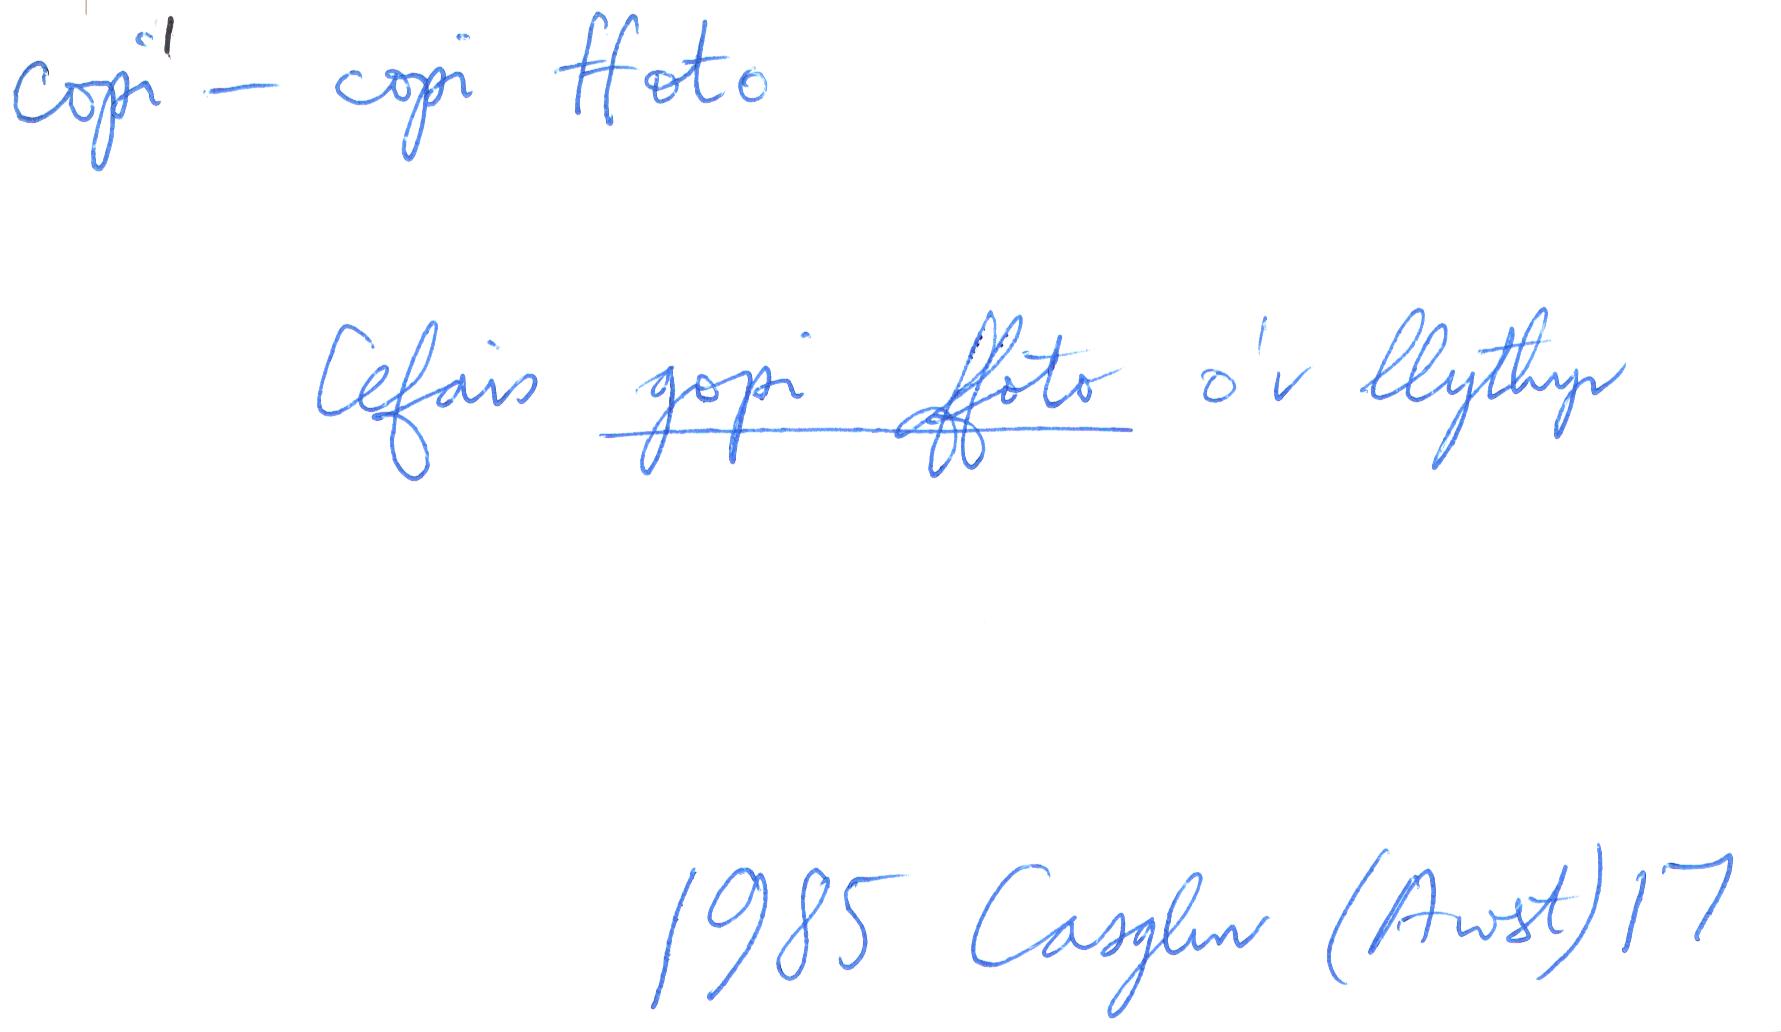 copi¹ – copi ffoto
Cefais gopi ffoto o'r llythyr
1985 Casglu (Awst) 17